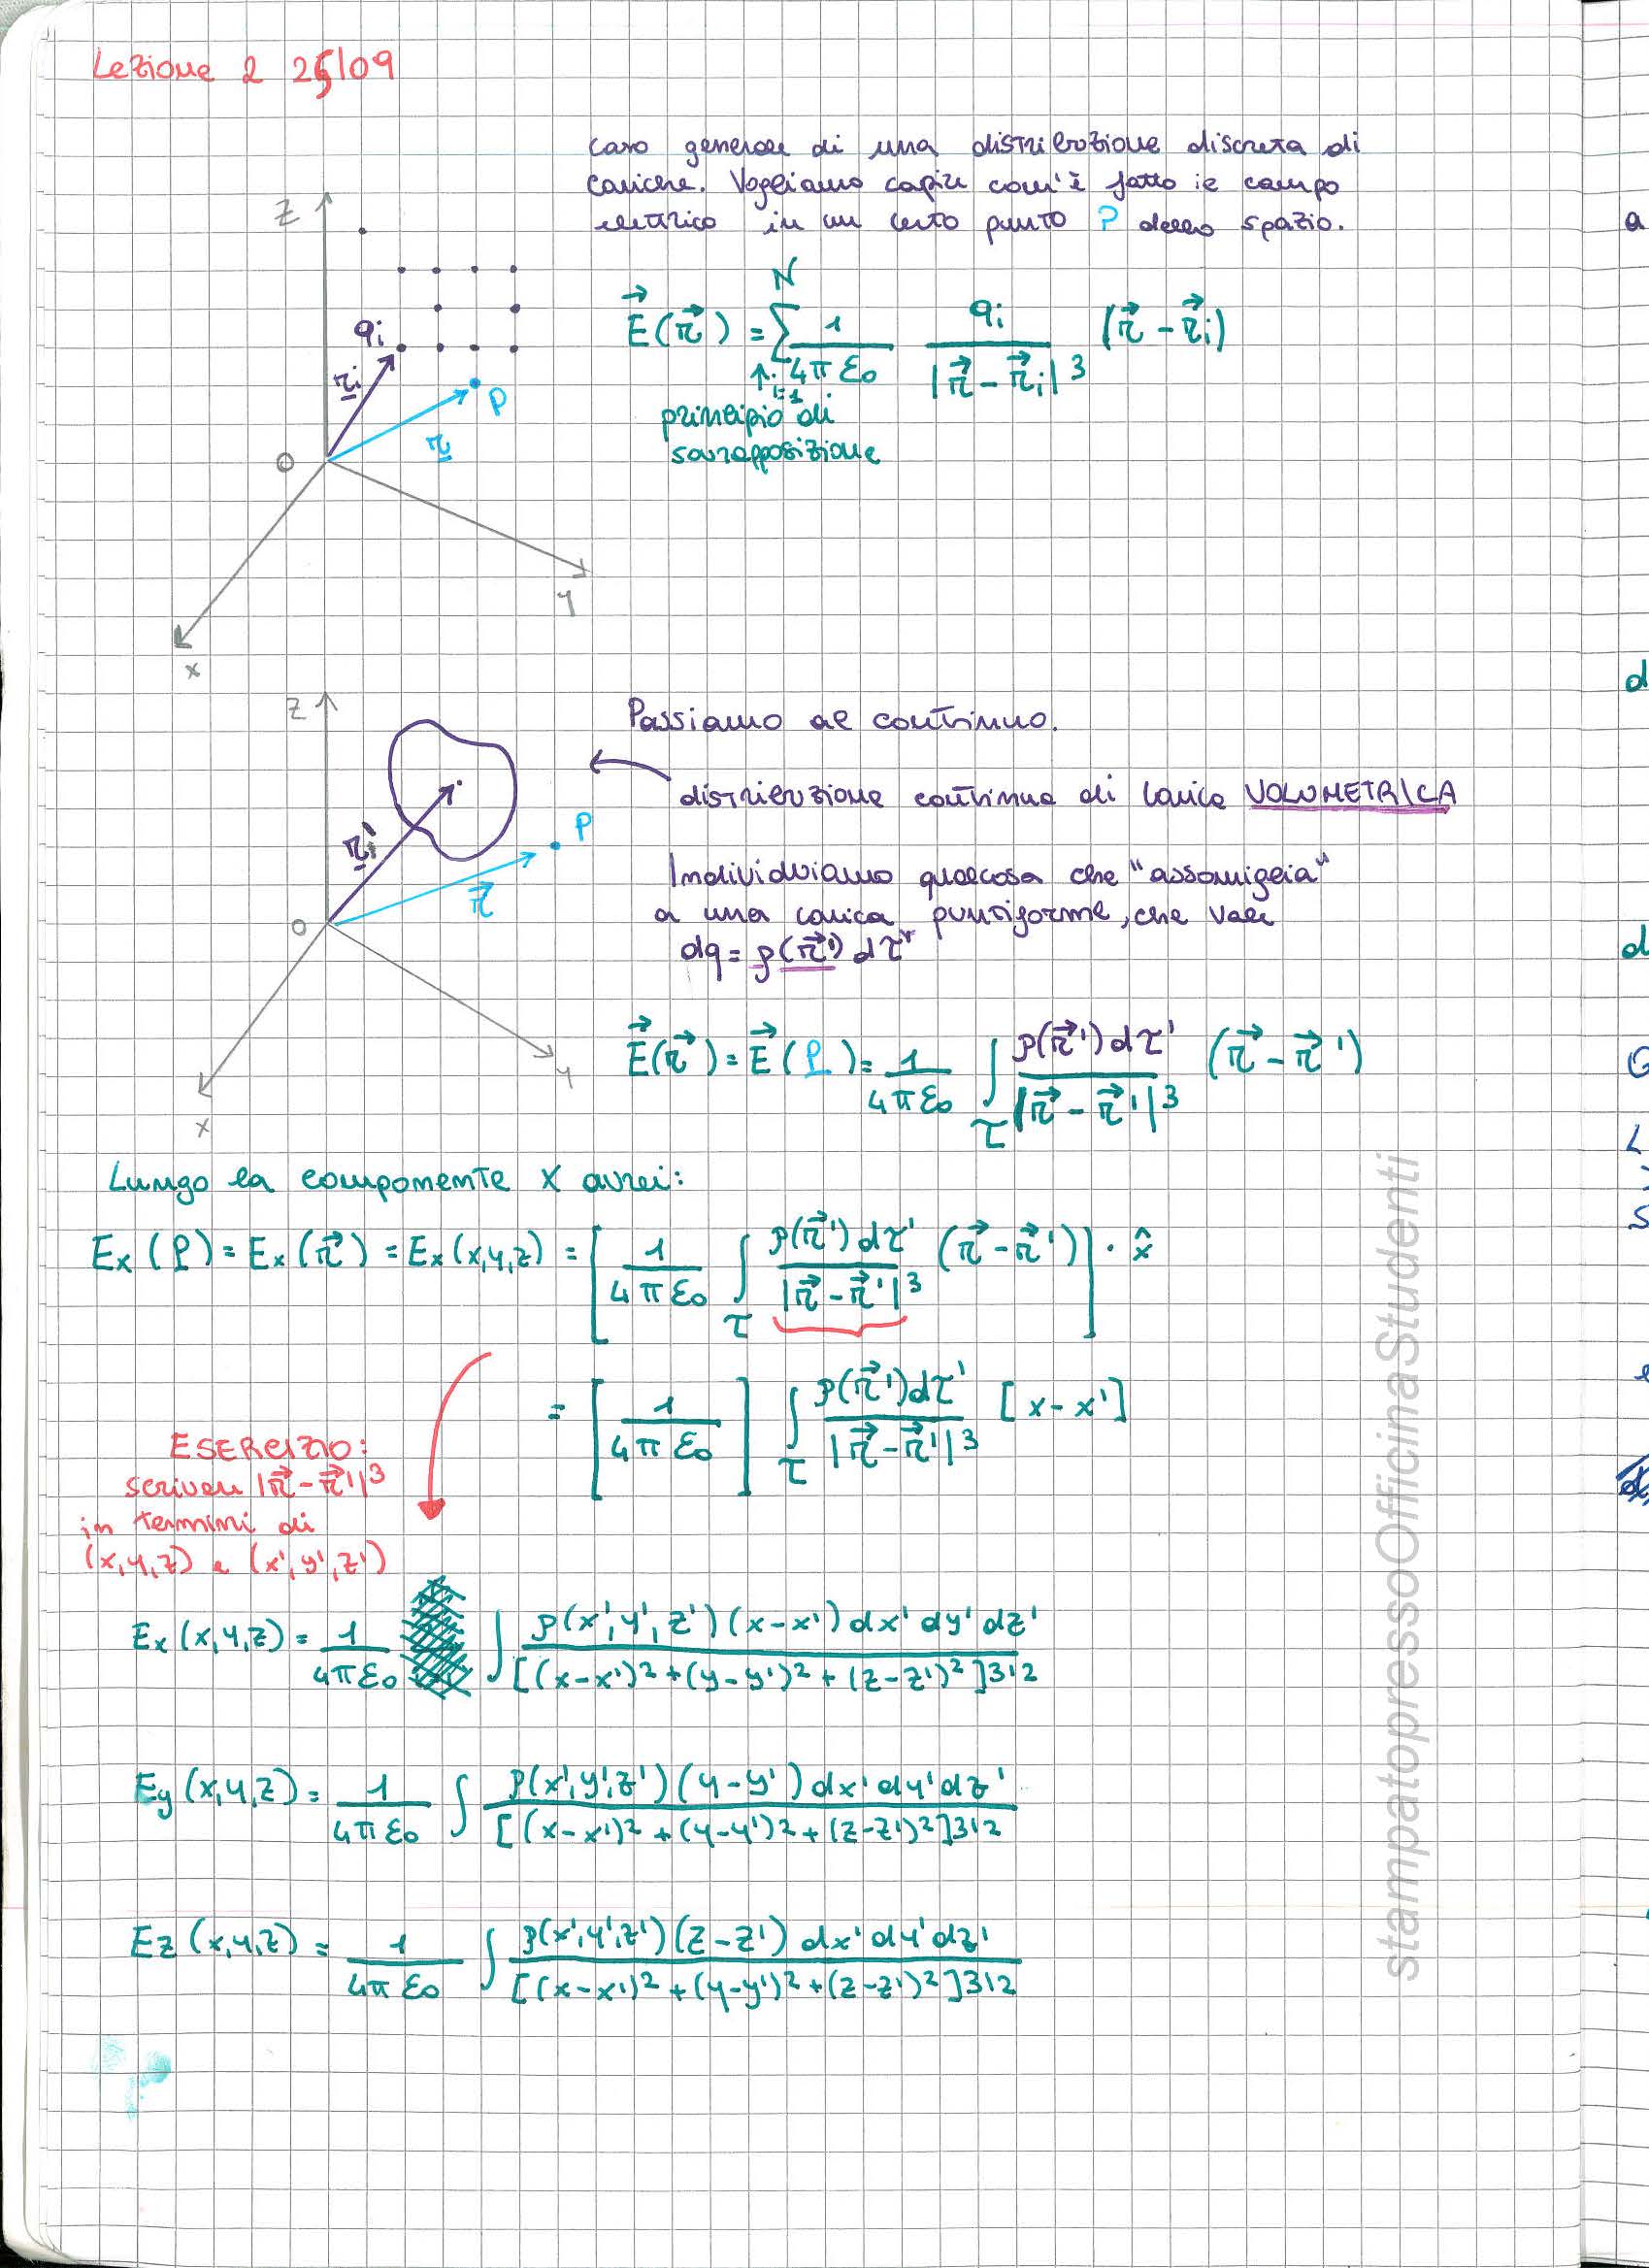 Lezione 2 25/09
caso generale di una distribuzione discreta di
cariche. Vogliamo capire com'è fatto il campo
elettrico in un certo punto P dello spazio.
z
q_i
r_i
P
r
O
y
x
E⃗(r⃗) = Σ_{i=1}^{N} 1/(4πε₀) q_i/|r⃗ - r⃗_i|³ (r⃗ - r⃗_i)
↑
principio di
sovrapposizione
z
r'
P
r⃗
O
y
x
Passiamo al continuo.
distribuzione continua di carica VOLUMETRICA
Individuiamo qualcosa che "assomiglia"
a una carica puntiforme, che vale
dq = ρ(r⃗') dτ'
E⃗(r⃗) = E⃗(P) = 1/(4πε₀) ∫_τ ρ(r⃗') dτ'/|r⃗ - r⃗'|³ (r⃗ - r⃗')
Lungo la componente x avrei:
Ex(P) = Ex(r⃗) = Ex(x,y,z) = [1/(4πε₀) ∫_τ ρ(r⃗') dτ'/|r⃗ - r⃗'|³ (r⃗ - r⃗')] · x̂
= [1/(4πε₀)] ∫_τ ρ(r⃗') dτ'/|r⃗ - r⃗'|³ [x - x']
ESERCIZIO:
scrivere |r⃗ - r⃗'|³
in termini di
(x,y,z) e (x',y',z')
Ex(x,y,z) = 1/(4πε₀) ∫ ρ(x',y',z')(x-x') dx' dy' dz'/[(x-x')² + (y-y')² + (z-z')²]3/2
Ey(x,y,z) = 1/(4πε₀) ∫ ρ(x',y',z')(y-y') dx' dy' dz'/[(x-x')² + (y-y')² + (z-z')²]3/2
Ez(x,y,z) = 1/(4πε₀) ∫ ρ(x',y',z')(z-z') dx' dy' dz'/[(x-x')² + (y-y')² + (z-z')²]3/2
stampatopressoOfficinaStudenti
a
d
d
G
L
S
e